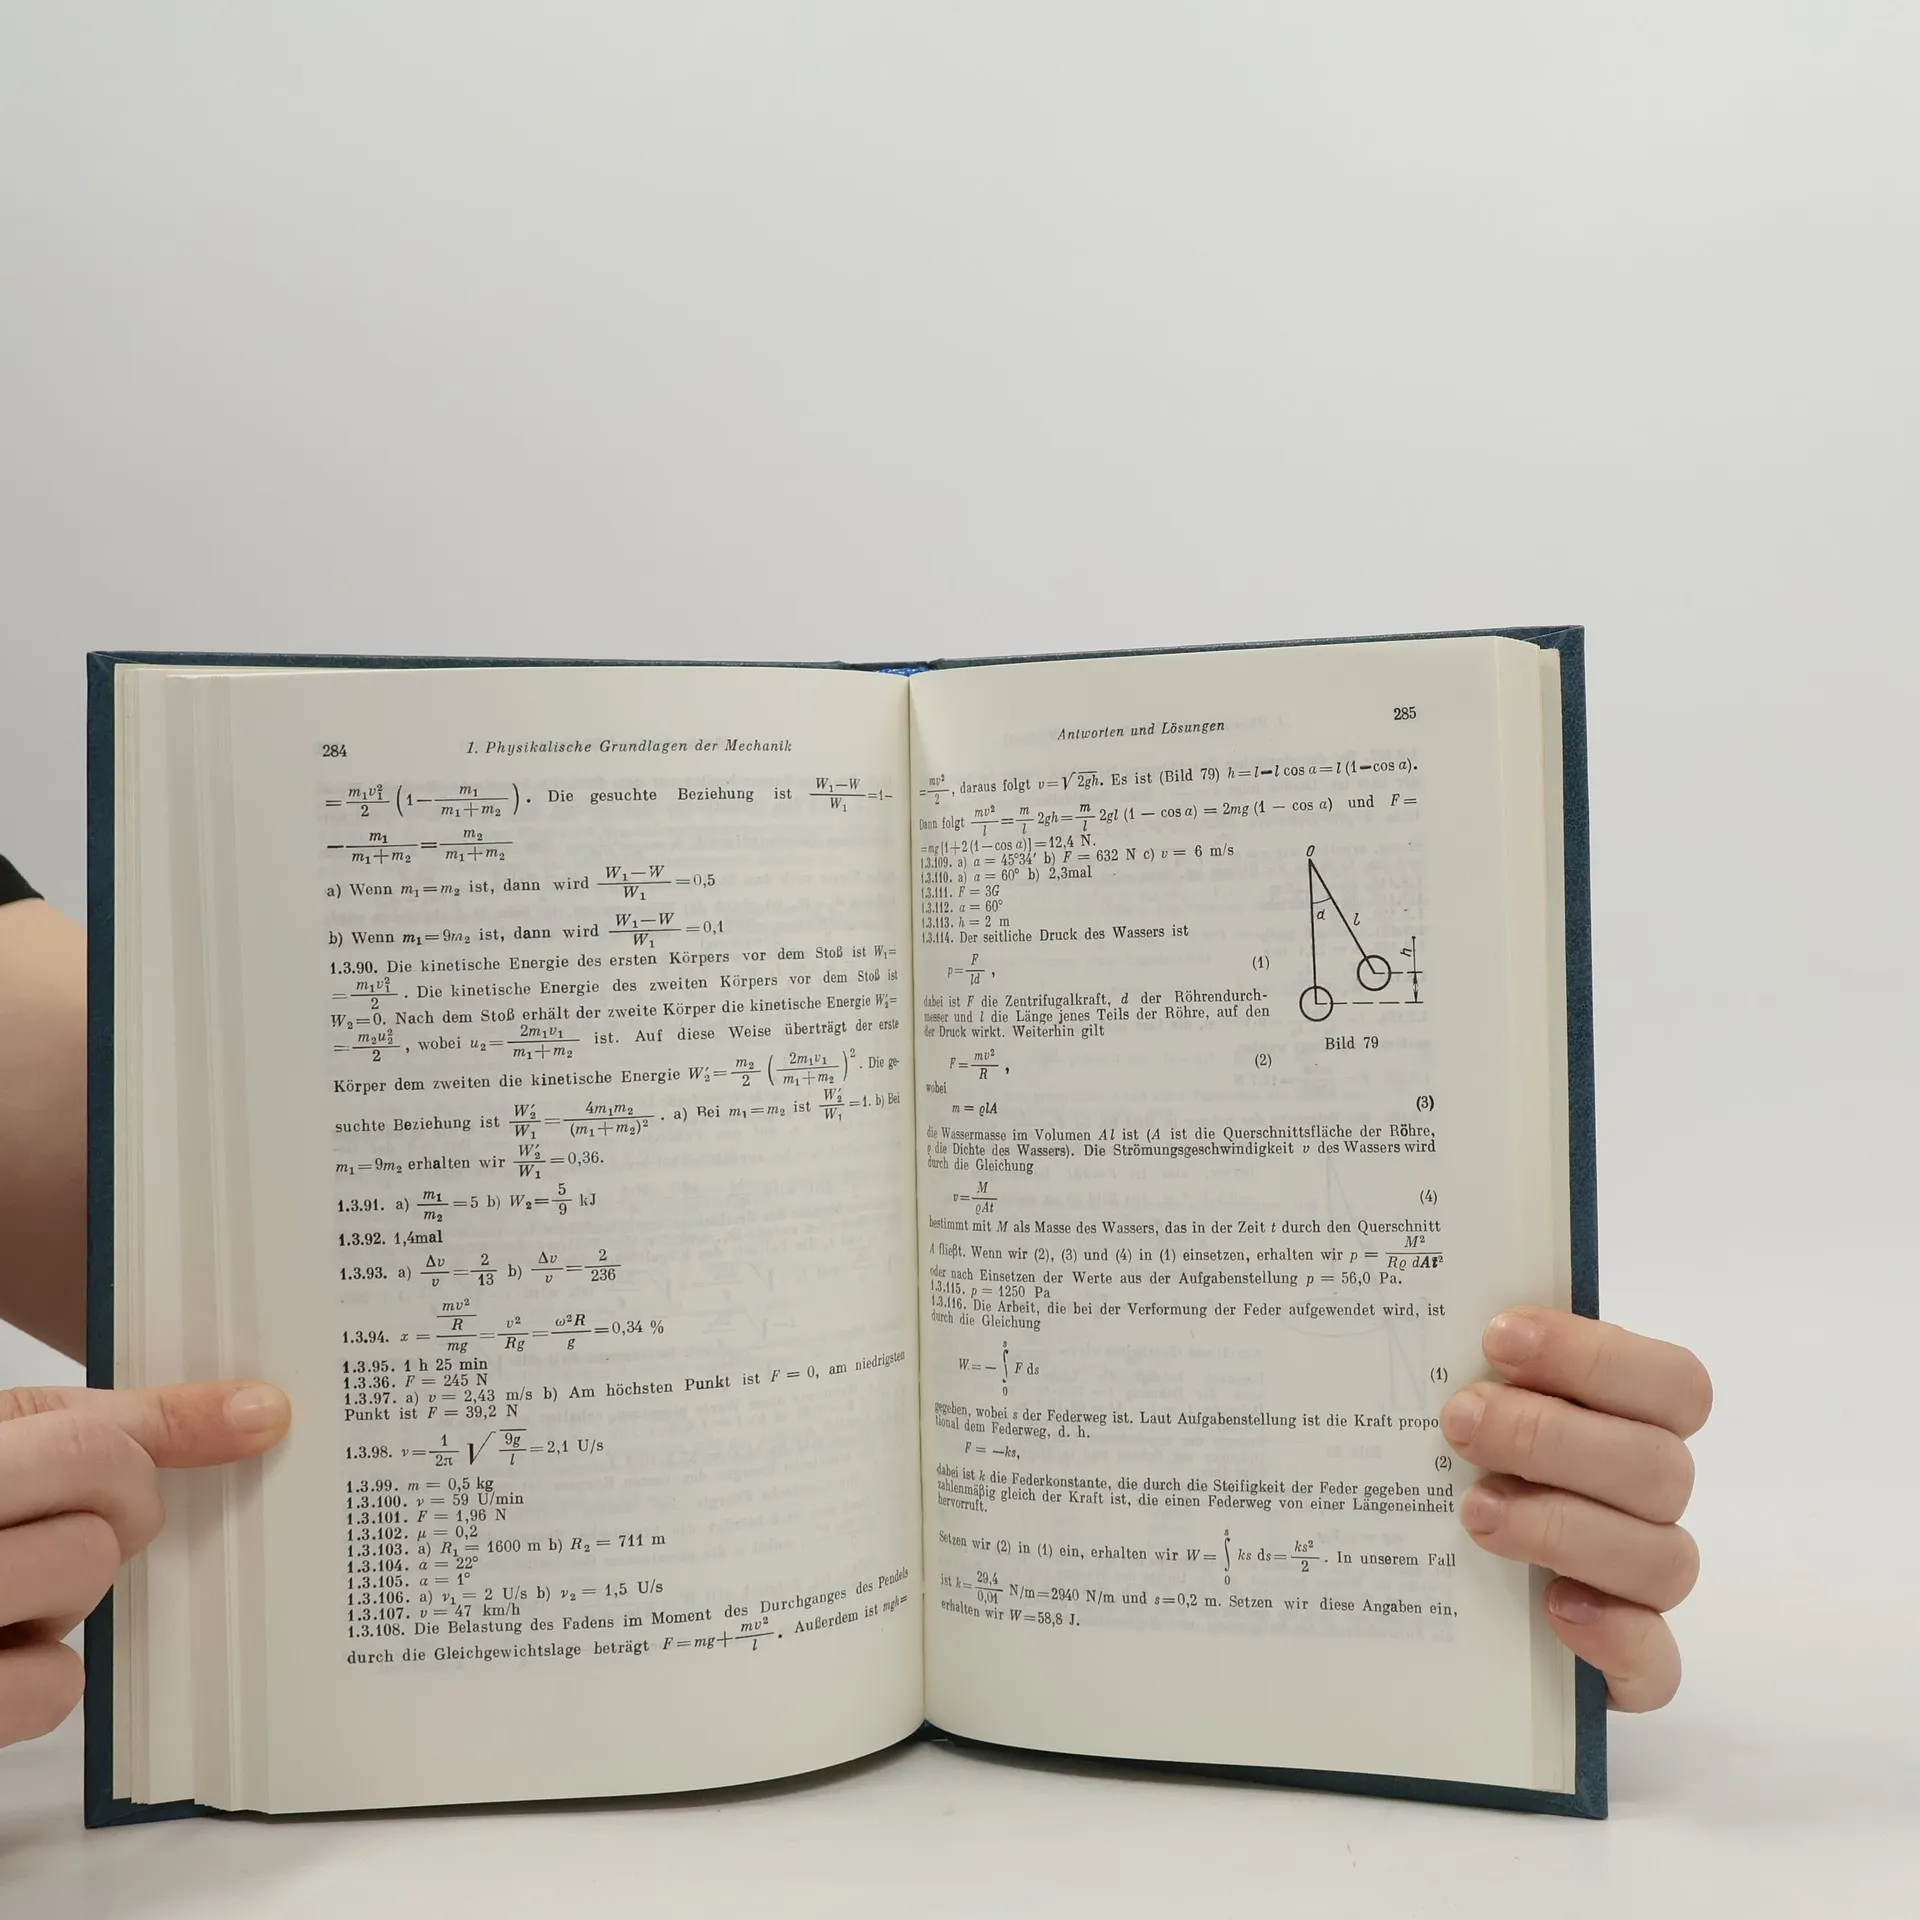 284 1. Physikalische Grundlagen der Mechanik
= m₁v₁²/2 (1 − m₁/(m₁+m₂)). Die gesuchte Beziehung ist (W₁−W)/W₁ =1−
− m₁/(m₁+m₂) = m₂/(m₁+m₂)
a) Wenn m₁=m₂ ist, dann wird (W₁−W)/W₁ =0,5
b) Wenn m₁=9m₂ ist, dann wird (W₁−W)/W₁ =0,1
1.3.90. Die kinetische Energie des ersten Körpers vor dem Stoß ist W₁=
= m₁v₁²/2 . Die kinetische Energie des zweiten Körpers vor dem Stoß ist
W₂=0. Nach dem Stoß erhält der zweite Körper die kinetische Energie W₂′=
= m₂u₂²/2 , wobei u₂= 2m₁v₁/(m₁+m₂) ist. Auf diese Weise überträgt der erste
Körper dem zweiten die kinetische Energie W₂′= m₂/2 (2m₁v₁/(m₁+m₂))². Die ge-
suchte Beziehung ist W₂′/W₁ = 4m₁m₂/(m₁+m₂)² . a) Bei m₁=m₂ ist W₂′/W₁ =1. b) Bei
m₁=9m₂ erhalten wir W₂′/W₁ =0,36.
1.3.91. a) m₁/m₂ =5 b) W₂= 5/9 kJ
1.3.92. 1,4mal
1.3.93. a) Δv/v = 2/13 b) Δv/v = 2/236
1.3.94. x = (mv²/R)/mg = v²/Rg = ω²R/g =0,34 %
1.3.95. 1 h 25 min
1.3.36. F = 245 N
1.3.97. a) v = 2,43 m/s b) Am höchsten Punkt ist F = 0, am niedrigsten
Punkt ist F = 39,2 N
1.3.98. ν= 1/2π √(9g/l) =2,1 U/s
1.3.99. m = 0,5 kg
1.3.100. ν = 59 U/min
1.3.101. F = 1,96 N
1.3.102. μ = 0,2
1.3.103. a) R₁ = 1600 m b) R₂ = 711 m
1.3.104. α = 22°
1.3.105. α = 1°
1.3.106. a) ν₁ = 2 U/s b) ν₂ = 1,5 U/s
1.3.107. v = 47 km/h
1.3.108. Die Belastung des Fadens im Moment des Durchganges des Pendels
durch die Gleichgewichtslage beträgt F=mg+ mv²/l . Außerdem ist mgh=
Antworten und Lösungen 285
= mv²/2 , daraus folgt v=√2gh. Es ist (Bild 79) h=l−l cos α=l (1−cos α).
Dann folgt mv²/l = m/l 2gh= m/l 2gl (1 − cos α) = 2mg (1 − cos α) und F=
=mg[1+2(1−cos α)]=12,4 N.
1.3.109. a) α = 45°34′ b) F = 632 N c) v = 6 m/s
1.3.110. a) α = 60° b) 2,3mal
1.3.111. F = 3G
1.3.112. α = 60°
1.3.113. h = 2 m
1.3.114. Der seitliche Druck des Wassers ist
p= F/ld , (1)
dabei ist F die Zentrifugalkraft, d der Röhrendurch-
messer und l die Länge jenes Teils der Röhre, auf den
der Druck wirkt. Weiterhin gilt
O
α
l
h
Bild 79
F= mv²/R , (2)
wobei
m = ϱlA (3)
die Wassermasse im Volumen Al ist (A ist die Querschnittsfläche der Röhre,
ϱ die Dichte des Wassers). Die Strömungsgeschwindigkeit v des Wassers wird
durch die Gleichung
v= M/ϱAt (4)
bestimmt mit M als Masse des Wassers, das in der Zeit t durch den Querschnitt
A fließt. Wenn wir (2), (3) und (4) in (1) einsetzen, erhalten wir p = M²/Rϱ dAt²
oder nach Einsetzen der Werte aus der Aufgabenstellung p = 56,0 Pa.
1.3.115. p = 1250 Pa
1.3.116. Die Arbeit, die bei der Verformung der Feder aufgewendet wird, ist
durch die Gleichung
W=−∫₀ˢ F ds (1)
gegeben, wobei s der Federweg ist. Laut Aufgabenstellung ist die Kraft propo
tional dem Federweg, d. h.
F = −ks, (2)
dabei ist k die Federkonstante, die durch die Steifigkeit der Feder gegeben und
zahlenmäßig gleich der Kraft ist, die einen Federweg von einer Längeneinheit
hervorruft.
Setzen wir (2) in (1) ein, erhalten wir W=∫₀ˢ ks ds= ks²/2 . In unserem Fall
ist k= 29,4/0,01 N/m=2940 N/m und s=0,2 m. Setzen wir diese Angaben ein,
erhalten wir W=58,8 J.